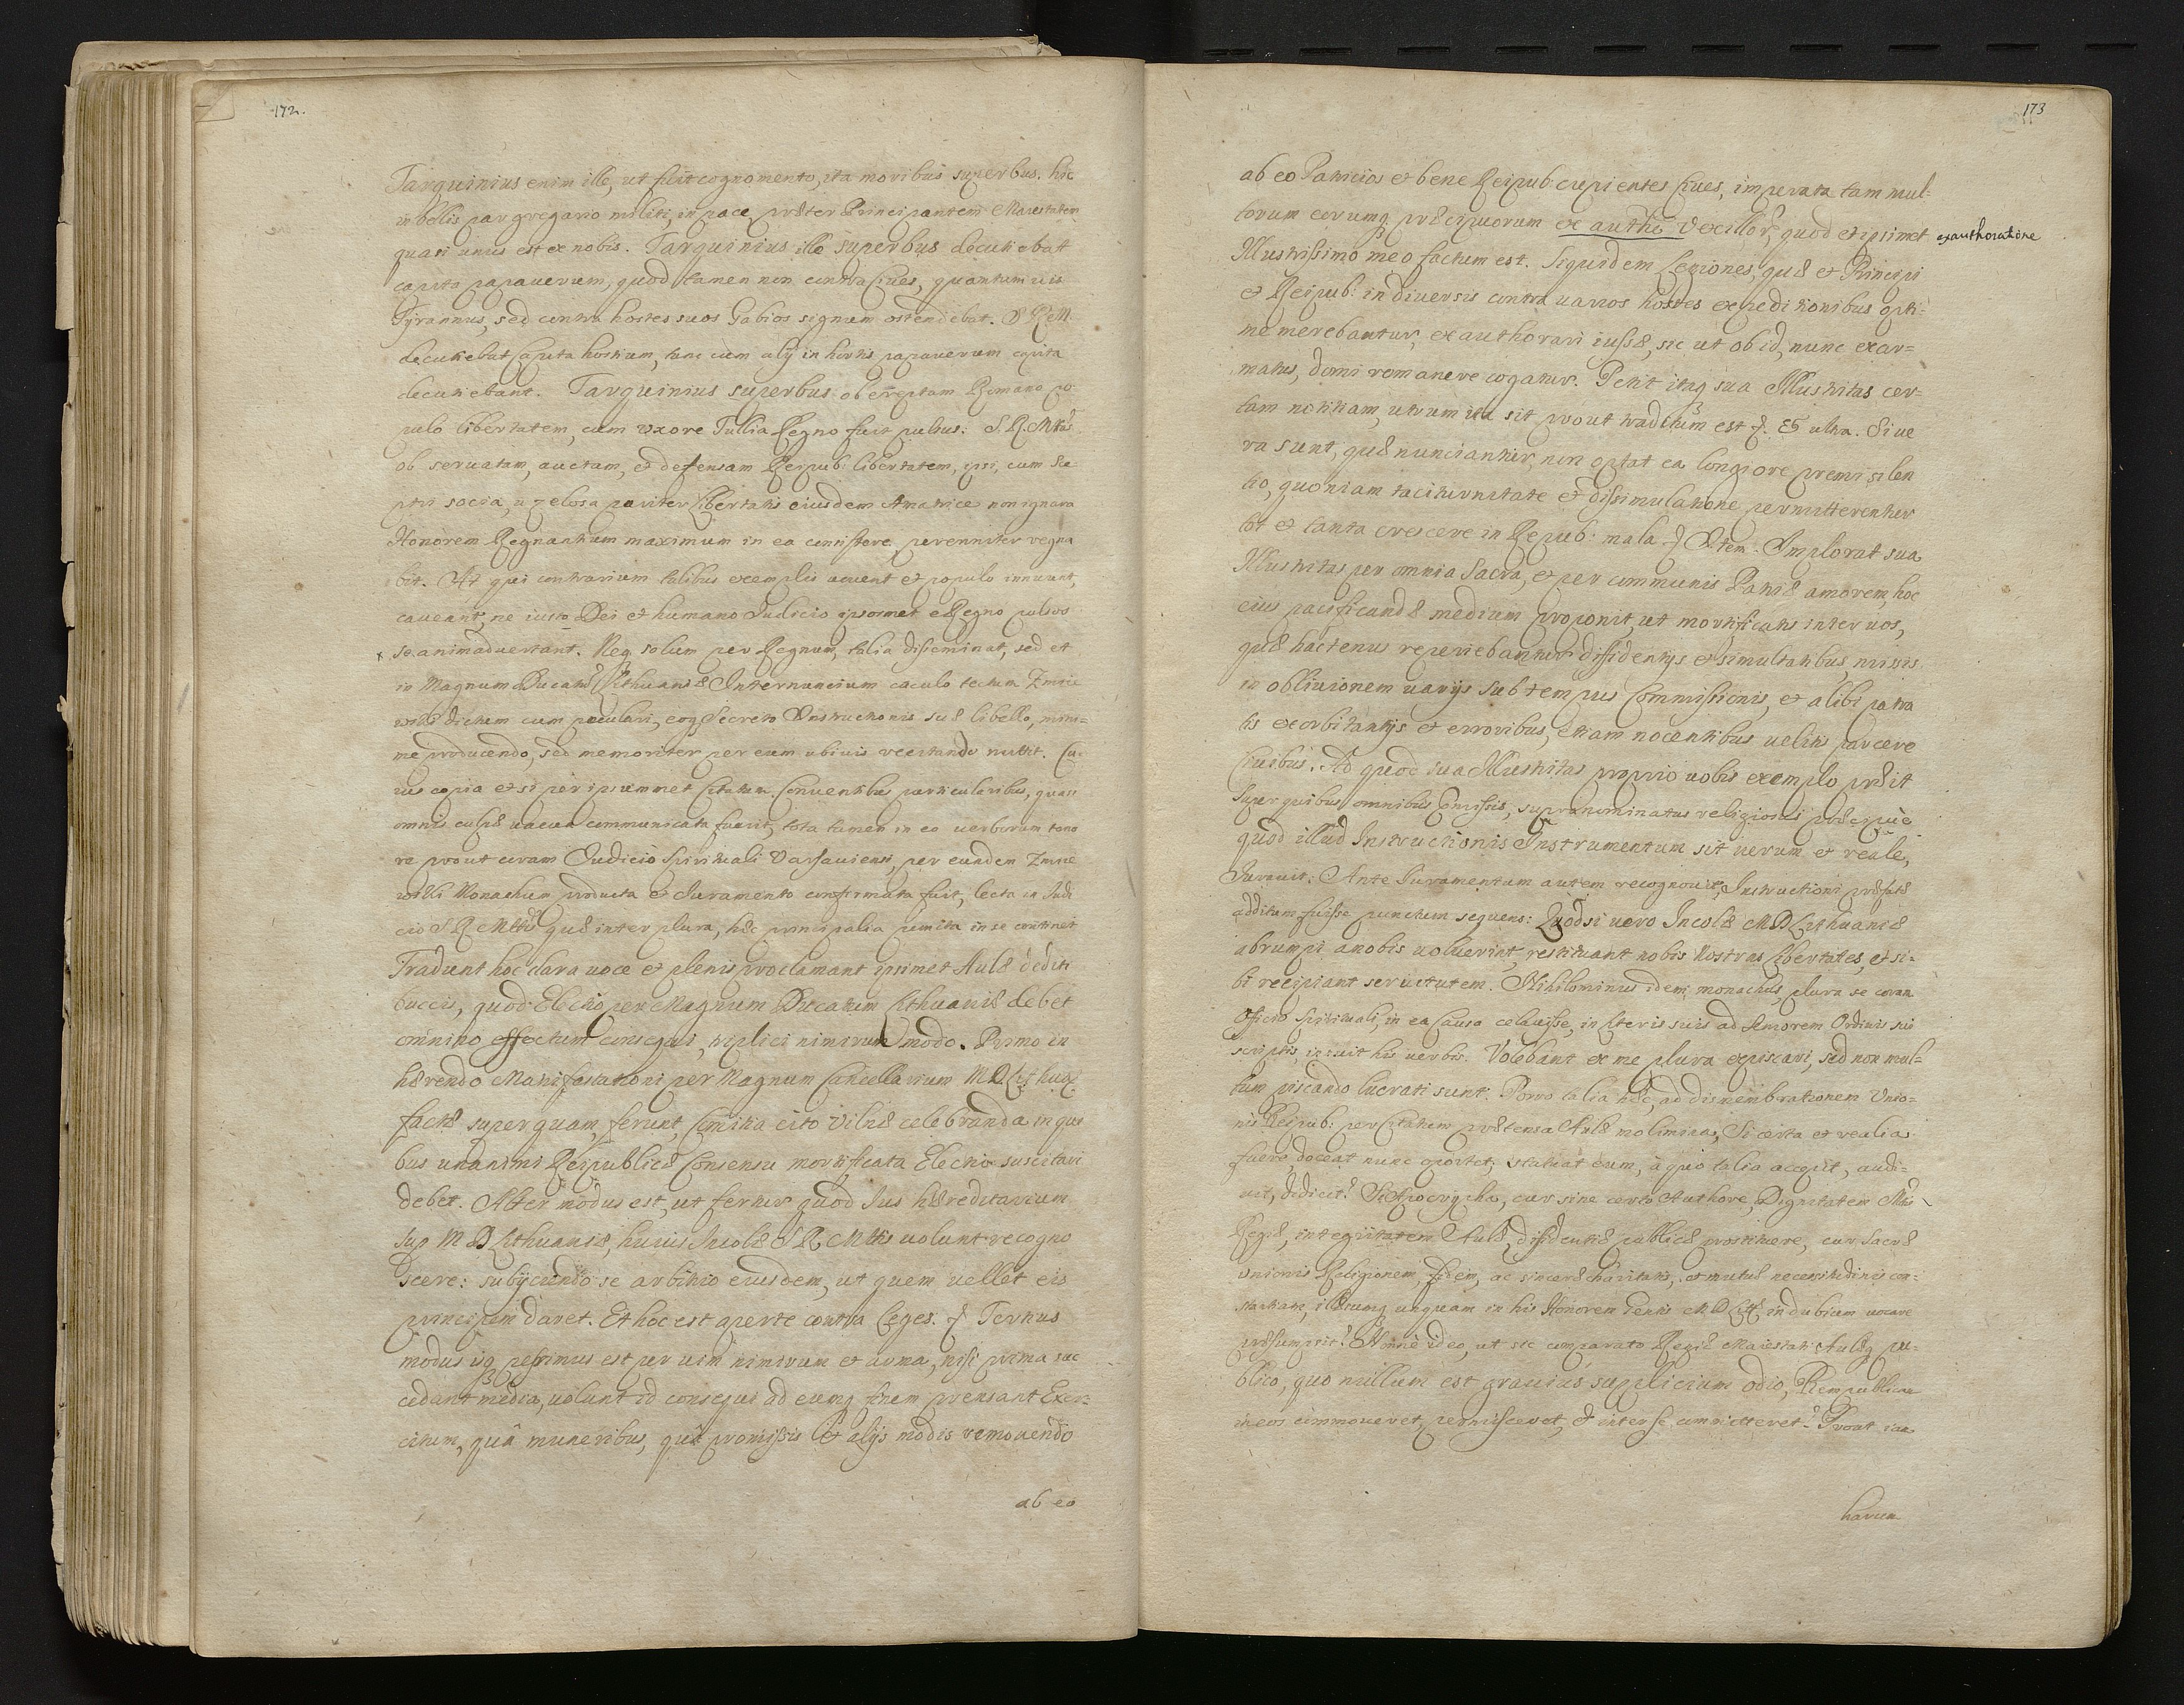 172.
Tarquinius enim ille, ut fuit cognomento, ita moribus superbus. hic
in bellis par gregario militi, in pace, præter Principantem Maiestatem
quasi unus est ex nobis. Tarquinius ille superbus decutiebat
capita papauerum, quod tamen non contra Ciues, quantumuis
Tyrannus, sed contra hostes suos Gabios signum ostendebat. S R M
decutiebat Capita hostium, tunc cum alij in hortis papauerum capita
decutiebant. Tarquinius superbus ob ereptam Romano po
pulo libertatem, cum uxore Tullia Regno fuit pulsus: S. R. Mttas
ob seruatam, auctam, et defensam Reipub: libertatem, ipsi, cum Sce
ptri socia, uti zelosa pariter libertatis eiusdem Amatrice non ignara
Honorem Regnantium maximum in ea consistere, perenniter regna
bit. At qui contrarium talibus exemplis mouent et populo innuunt,
caueant, ne iusto Dei et humano Iudicio ipsosmet e Regno pulsos
se animaduertant. Neq solum per Regnum, talia disseminat, sed et
in Magnum Ducatu Lithuaniæ Internuncium caculo tectum Zmie
wski dictum cum peculiari, eoq Secreto Instructionis suæ libello, mini=
me producendo, sed memoriter per eum ubiuis recitando mittit. Cu=
ius copia etsi per ipsummet Citatum Conuentibus particularibus, quasi
omnis culpæ uacua communicata fuerit, tota tamen in eo uerborum teno
re prout coram Iudicio Spirituali Varsauiensi, per eundem Zmie
wski Monachum producta et Iuramento confirmata fuit, lecta in Iudi
cio S R Mttis quæ inter plura, hæc principalia puncta in se continet
Tradunt hoc clara uoce et plenis proclamant ipsimet Aulæ dediti
buccis, quod Electio per Magnum Ducatum Lithuaniæ debet
omnino effectum consequi, triplici nimirum modo. Primo in
hærendo Manifestationi per Magnum Cancellarium M D Lithuaæ
factæ super quam, ferunt, Comitia cito Vilnæ celebranda in qui
bus unanimi Reipublicæ Consensu mortificata Electio suscitari
debet. Alter modus est, ut fertur quod Ius hæreditarium
sup M D Lithuaniæ, huius Incolæ S R Mttis uolunt recogno
scere: subijciendo se arbitrio eiusdem, ut quem uellet eis
principem daret. Et hoc est aperte contra Leges. Tertius
modus isq pessimus est per uim nimirum et arma, nisi prima suc
cedant media, uolunt id consequi ad eumq finem prensant Exer=
citum, quâ muneribus, quâ promissis et alijs modis remouendo
ab eo
173
ab eo Patricios et bene Reipub: cupientes Ciues, imperata tam mul=
torum eorumq præcipuorum ex authõ Vexillor, quod et ipsimet
exauthoratione
Illustrissimo meo factum est. Siquidem Legiones, quæ et Principi
et Reipub: in diuersis contra uarios hostes expeditionibus opti=
me merebantur, exauthorari iussæ, sic ut ob id, nunc exar=
matus, domi remanere cogatur. Petit itaq sua Illustritas cer=
tam notitiam, utrum ita sit prout traditum est. Et ultra. Si ue
ra sunt, quæ nunciantur, non optat ea longiore premi silen
tio, quoniam taciturnitate et dissimulatione permitterentur
tot et tanta crescere in Repub: mala. Item. Implorat sua
Illustritas per omnia Sacra, et per communis Patriæ amorem, hoc
eius pacificandæ medium proponit, ut mortificatis inter uos,
quæ hactenus reperiebantur dissidentijs et simultatibus, missis
in obliuionem uarijs sub tempus Commissionis, et alibi patra
tis exorbitantijs et erroribus, etiam nocentibus uelitis parcere
Ciuibus. Ad quod sua Illustritas proprio uobis exemplo præit
Super quibus omnibus præmissis, supranominatus religiosus præcipuè
quod illud Instructionis Instrumentum sit uerum et reale,
Iurauit. Ante Iuramentum autem recognouit, Instructioni præfatæ
additum fuisse punctum sequens: Quodsi uero Incolæ M D Lithuaniæ
abrumpi a nobis uoluerint, restituant nobis Nostras libertates, et si=
bi recipiant seruitutem. Nihilominus idem monachus, plura se coram
Officio Spirituali, in ea Causa celauisse, in literis suis ad Seniorem Ordinis sui
scriptis, innuit his uerbis. Volebant ex me plura expiscari, sed non mul=
tum piscando lucrati sunt. Porro talia hæc, ad dismembrationem Unio=
nis Reipub: per Citatum prætensa Aulæ molimina, Si certa et realia
fuere, doceat nunc oportet, statuat eum, à quo talia accepit, audi=
uit, didicit? Si Apocrypha, cur sine certo Authore, Dignitatem Mttis
Regiæ, integritatem Aulæ, dissidentiæ publicæ prostituere, cur Sacræ
unionis Religionem, fidem, ac sinceræ charitatis, et mutuæ necessitudinis con=
stantiam, illæsumq unquam in his Honorem Gentis M D Litt. in dubium uocare
præsumpsit? Nonne ideo, ut sic comparato Regiæ Maiestati Aulæq pu=
blico, quo nullum est grauius supplicium odio, Rempublicam
in eos commoueret, permisceret, et inter se committeret? Prout iam
harum